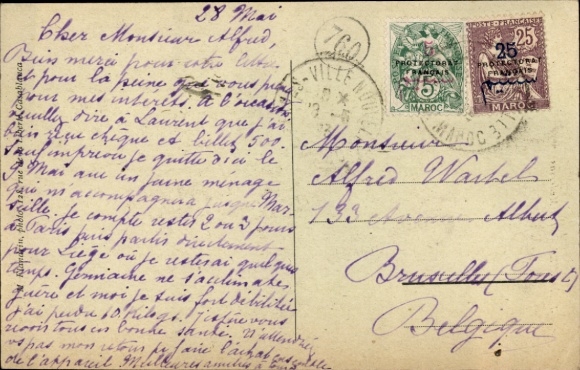 28 Mai
Cher Monsieur Alfred,
merci pour votre lettre
et pour la peine que vous
pour mes intérêts. à l'occasion
veuillez dire à Laurent que j'ai
bien reçu chèque et billet 500.
Sauf imprévu je quitte d'ici le
Mai avec un jeune ménage
qui m'accompagnera jusque Mar-
seille. Je compte rester 2 ou 3 jours
à Paris puis partir directement
pour Liège où je resterai quelque
temps. Germaine ne s'acclimate
guère et moi je suis fort débilitée
j'ai perdu 10 kilogs. J'espère vous
revoir tous en bonne santé. N'attendez
pas mon retour pr faire l'achat
de l'appareil Meilleures amitiés à tous
760
VILLE NOUV
MAROC
5
PROTECTORAT
FRANÇAIS
5
MAROC
POSTE FRANÇAISE
25
25
PROTECTORAT
FRANÇAIS
MAROC
Monsieur
Alfred
133 Avenue Albert
Bruxelles (Forest)
Belgique
Casablanca